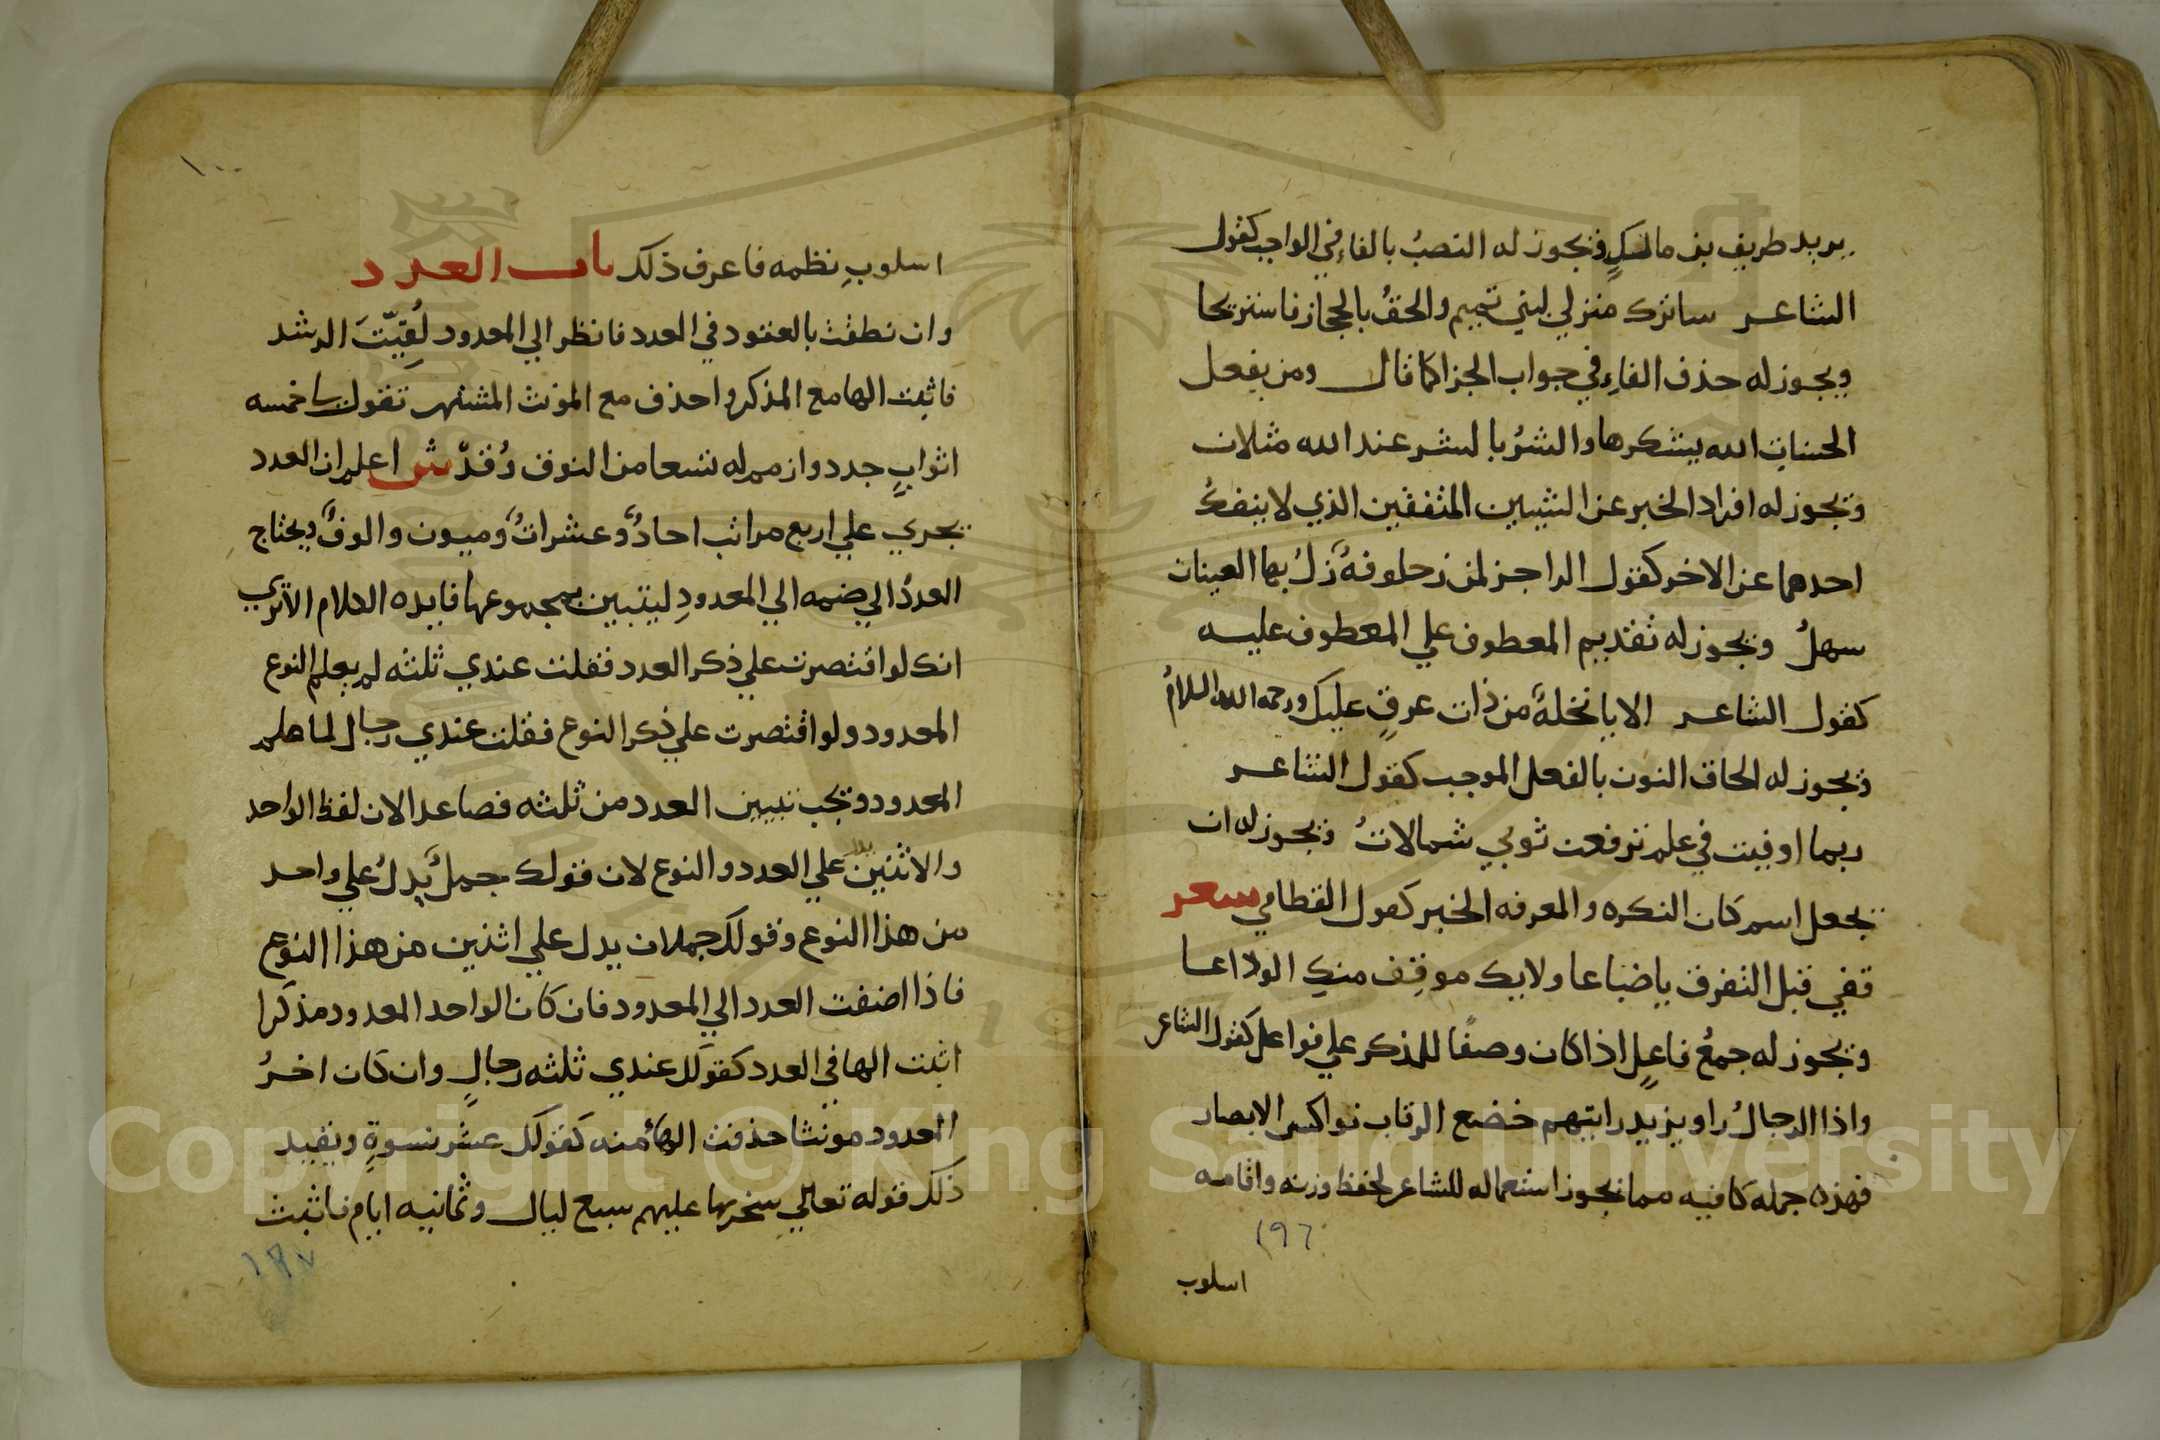 يريد طريف بن مالك ويجوز له النصب بالفاء في الواجب كقول
الشاعر ساترك منزلي لبني تميم والحق بالحجاز فاستريحا
ويجوز له حذف الفاء في جواب الجزا كما قال ومن يفعل
الحسنات الله يشكرها والشر بالشر عند الله مثلان
ويجوز له افراد الخبر عن الشيين المتفقين الذي لا ينفك
احدهما عن الاخر كقول الراجز لمن زحلوفة زل بها العينان
سهل ويجوز له تقديم المعطوف علي المعطوف عليه
كقول الشاعر الا يا نخلة من ذات عرق عليك ورحمه الله السلام
ويجوز له الحاق النون بالفعل الموجب كقول الشاعر
ربما اوفيت في علم ترفعن ثوبي شمالات ويجوز له ان
يجعل اسم كان النكره والمعرفه الخبر كقول القطامي شعر
قفي قبل التفرق يا ضباعا ولا يك موقف منك الوداعا
ويجوز له جمع فاعل اذا كان وصفا للمذكر علي فواعل كقول الشاعر
واذا الرجال راو يزيد رايتهم خضع الرقاب نواكس الابصار
فهذه جمله كافيه مما يجوز استعماله للشاعر لحفظ وزنه واقامه
١٩٦
اسلوب
١٠٠
اسلوب نظمه فاعرف ذلك باب العدد
وان نطقت بالعقود في العدد فانظر الي المعدود لقيت الرشد
فاثبت الها مع المذكر واحذف مع المونث المشتهر تقول لي خمسه
اثواب جدد وازمم له تسعا من النوق وقد ش اعلم ان العدد
يجري علي اربع مراتب احاد وعشرات وميون والوف ويحتاج
العدد الي ضمه الي المعدود ليتبين بمجموعها فايده الكلام الا تري
انك لو اقتصرت علي ذكر العدد فقلت عندي ثلثه لم يعلم النوع
المعدود ولو اقتصرت علي ذكر النوع فقلت عندي رجال لما علم
المعدود ويجب تبيين العدد من ثلثه فصاعدا لان لفظ الواحد
والاثنين يدل علي العدد والنوع لان قولك جمل يدل علي واحد
من هذا النوع وقولك جملان يدل علي اثنين من هذا النوع
فاذا اضفت العدد الي المعدود فان كان الواحد المعدود مذكرا
اثبت الها في العدد كقولك عندي ثلثه رجال وان كان اخر
المعدود مونثا حذفت الهاء منه كقولك عشر نسوة ويفيد
ذلك قوله تعالي سخرها عليهم سبع ليال وثمانيه ايام فاثبت
١٩٧
Copyright © King Saud University
1957